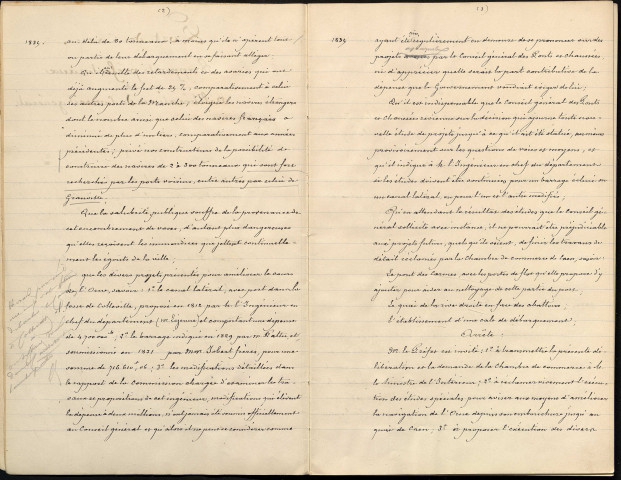 (2)
1839.
au delà de 80 tonneaux, à moins qu'ils n'opèrent tout
ou partie de leur débarquement en se faisant alléger.
Qu'il résulte des retardements et des avaries qui ont
déjà augmenté le fret de 25 %, comparativement à celui
des autres ports de la Manche; éloigne les navires étrangers
dont le nombre ainsi que celui des navires français a
diminué de plus d'un tiers, comparativement aux années
précédentes; prive nos constructeurs de la possibilité de
construire des navires de 2 à 300 tonneaux qui sont fort
recherchés par les ports voisins, entre autres par celui de
Granville.
Que la salubrité publique souffre de la permanence de
cet encombrement de vases, d'autant plus dangereuses
qu'elles reçoivent les immondices que jettent continuelle-
ment les égouts de la ville;
que les divers projets présentés pour améliorer le cours
de l'Orne, savoir: 1º le canal latéral, avec port dans la
fosse de Colleville, proposé en 1812 par l'Ingénieur en
chef du département et comportant une dépense
de 4.700.000; 2º le barrage indiqué en 1829 par M. Pattu, et
soumissionné en 1831 par MM. Jobert frères, pour une
somme de 716.610, 06; 3º les modifications détaillées dans
le rapport de la Commission chargée d'examiner les tra-
vaux et propositions de cet ingénieur, modifications qui élèvent
la dépense à deux millions, n'ont jamais été soumis officiellement
au Conseil général et qu'alors il ne peut se considérer comme
(3)
1839
ayant été régulièrement en demeure de se prononcer sur des
projets par le Conseil général des Ponts et chaussées,
ni d'apprécier quelle serait la part contributive de la
dépense que le Gouvernement voudrait exiger de lui;
Qu'il est indispensable que le Conseil général des Ponts
et Chaussées revienne sur la décision qui ajourne toute nou-
velle étude de projets jusqu'à ce qu'il ait été statué, au moins
provisoirement sur les questions de voies et moyens, et
qu'il indique à M. l'Ingénieur en chef du département
si les études doivent être continuées pour un barrage éclusé ou
un canal latéral, ou pour l'un et l'autre modifiés;
Qu'en attendant le résultat des études que le Conseil gé-
néral sollicite avec instance, il ne pourrait être préjudiciable
aux projets futurs, quels qu'ils soient, de finir les travaux de
détail réclamés par la Chambre de commerce de Caen, savoir:
Le pont des Carmes avec les portes de flot qu'elle propose d'y
ajouter pour aider au nettoyage de cette partie du port.
Le quai de la rive droite en face des abattoirs
l'établissement d'une cale de débarquement.
Arrête:
M. le Préfet est invité: 1º à transmettre la présente dé-
libération et la demande de la Chambre de commerce à M.
le Ministre de l'Intérieur; 2º à réclamer vivement l'exécu-
tion des études spéciales pour aviser aux moyens d'améliorer
la navigation de l'Orne depuis son embouchure jusqu'au
quai de Caen; 3º à proposer l'exécution des divers